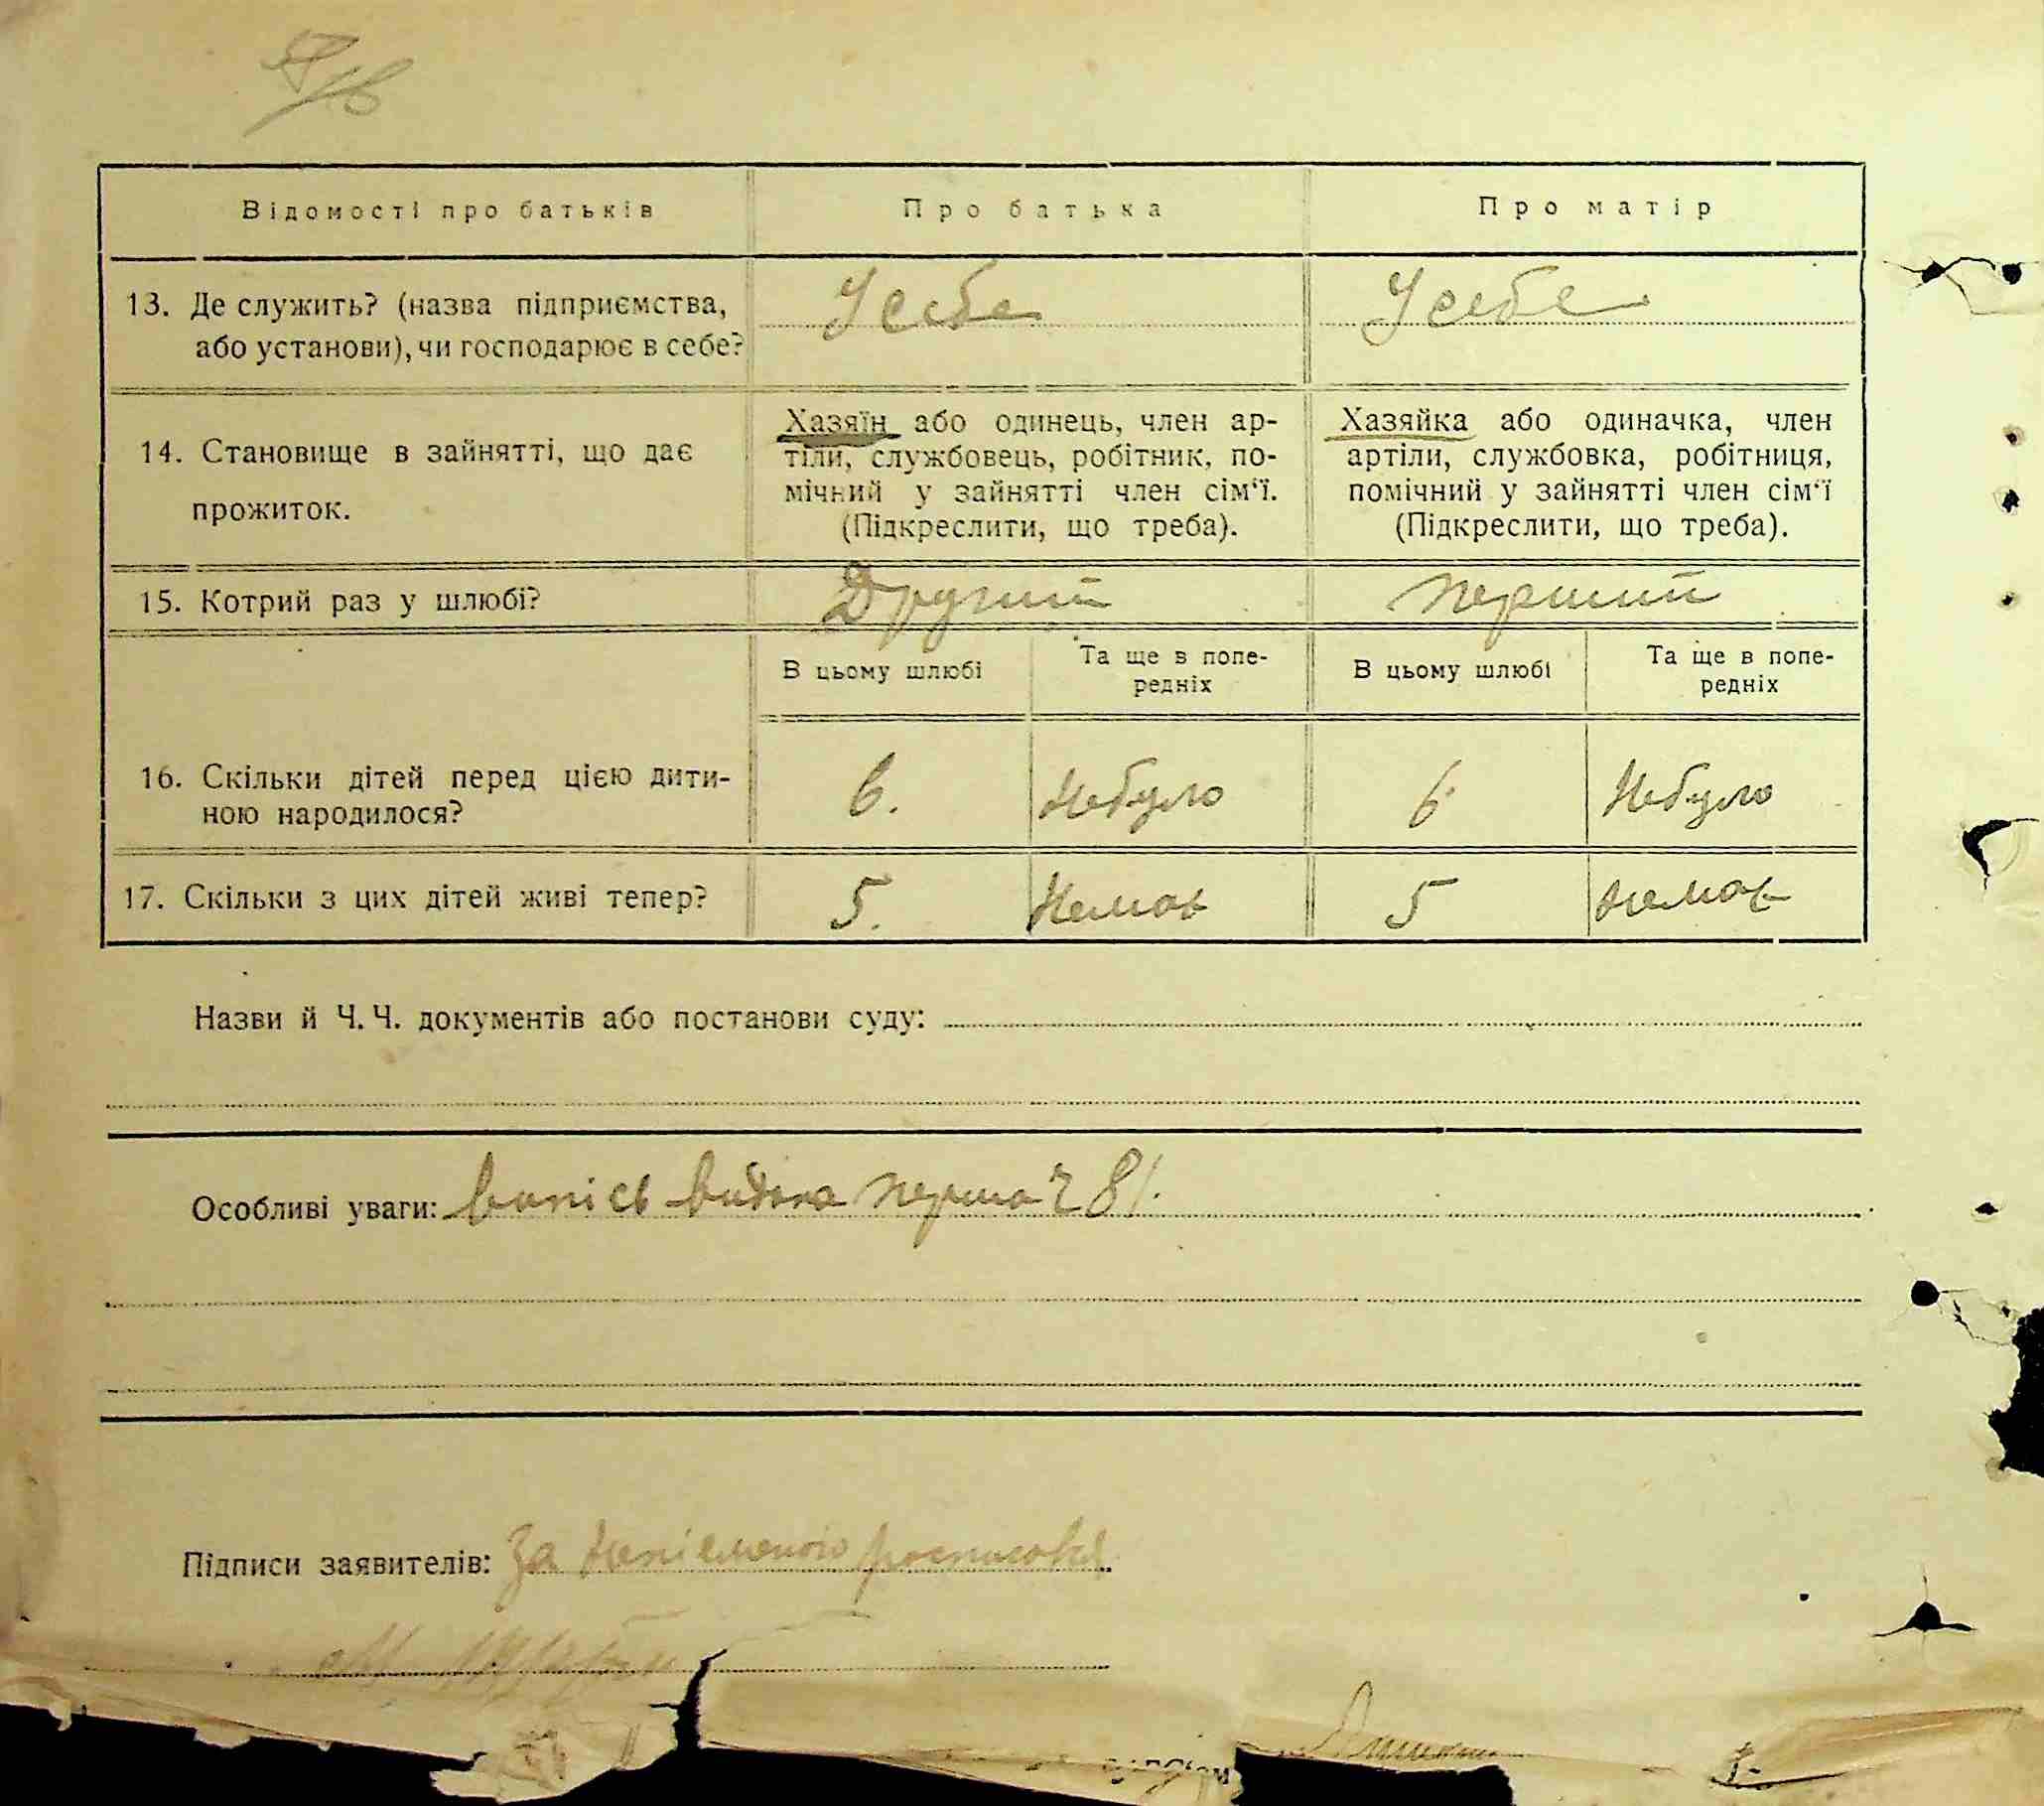 Відомості про батьків Про батька Про матір
13. Де служить? (назва підприємства, У себе У себе
або установи), чи господарює в себе?
14. Становище в зайнятті, що дає
прожиток.
Хазяїн або одинець, член ар-
тіли, службовець, робітник, по-
мічний у зайнятті член сім‘ї.
(Підкреслити, що треба).
Хазяйка або одиначка, член
артіли, службовка, робітниця,
помічний у зайнятті член сім‘ї
(Підкреслити, що треба).
15. Котрий раз у шлюбі? Другий перший
В цьому шлюбі
Та ще в попе-
редніх
В цьому шлюбі
Та ще в попе-
редніх
16. Скільки дітей перед цією дити-
ною народилося?
6. Небуло 6 Небуло
17. Скільки з цих дітей живі тепер? 5. Немає 5 немає
Назви й Ч. Ч. документів або постанови суду:
Особливі уваги: випісь видана перша 
Підписи заявителів: За